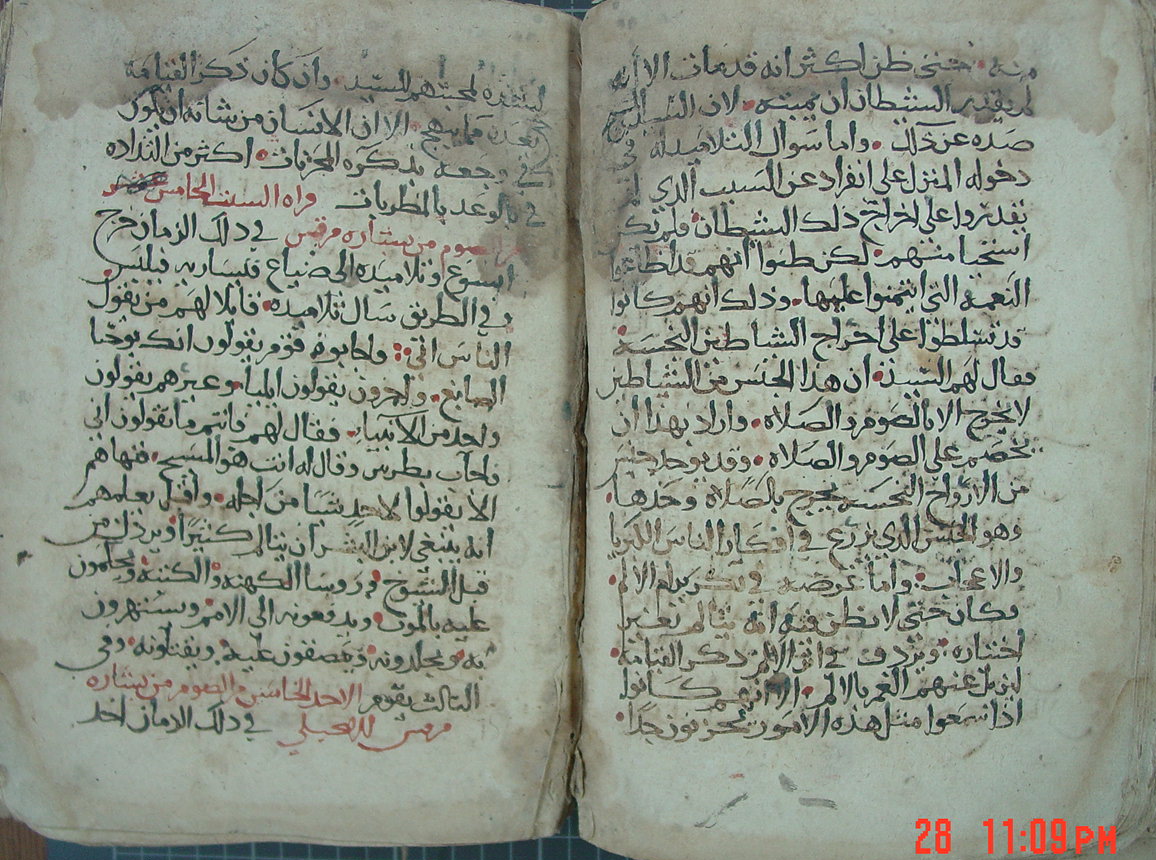 منه. حتى ظن اكثر انه قد مات الا انه
لم يقدر الشيطان ان يميته. لان السيد المسيح
صده عن ذلك. واما سوال التلاميذ له في
دخوله المنزل على انفراد عن السبب الذي لم
يقدروا على اخراج ذلك الشيطان فلم تكن
استحيا منهم. لكن ظنوا انهم قد اضاعوا
النعمة التي ايتمنوا عليها. وذلك انهم كانوا
قد تسلطوا على اخراج الشياطين النجسة.
فقال لهم السيد ان هذا الجنس من الشياطين
لا يخرج الا بالصوم والصلاة. واراد بهذا ان
يحضهم على الصوم والصلاة. وقد يوجد جنس
من الارواح النجسة يخرج بالصلاة وحدها.
وهو الجنس الذي يزرع في افكار الناس الكبريا
والاعجاب. واما غرضه في تكريره الالم.
فكان حتى لا يظن فيه انه يتالم بغير
اختياره. ويردف في اثر الالم ذكر القيامة
ليزيل عنهم الغم بالالم. الا انهم كانوا
اذا سمعوا مثل هذه الامور يحزنون جدا.
لمحبتهم للسيد. وان كان ذكر القيامة
بعده مما يبهج. الا ان الانسان من شانه ان يكون
في وجعه بذكره المحزنات. اكثر من التذاده
في بالوعد بالمطربات قراه السبت الخامس
من الصوم من بشاره مرقس في ذلك الزمان خرج
ايسوع وتلاميذه الى ضياع قيسارية فيلبس.
وفي الطريق سال تلاميذه. قايلا لهم من يقول
الناس اني: فاجابوه قوم يقولون انك يوحنا
الصابغ. واخرون يقولون ايليا. وغيرهم يقولون
واحد من الانبياء. فقال لهم فانتم ما تقولون اني
فاجاب بطرس وقال له انت هو المسيح. فنهاهم
الا يقولوا لاحد شيا من اجله. واقبل يعلمهم
انه ينبغي لابن البشر ان يتالم كثيرا ويرذل من
قبل الشيوخ وروسا الكهنه والكتبة ويحكمون
عليه بالموت. ويدفعونه الى الامم وستهزون
به ويجلدونه. ويبصقون عليه. ويقتلونه. وفي
الثالث يقوم الاحد الخامس من الصوم من بشاره
مرقس الانجيلي في ذلك الزمان اخد